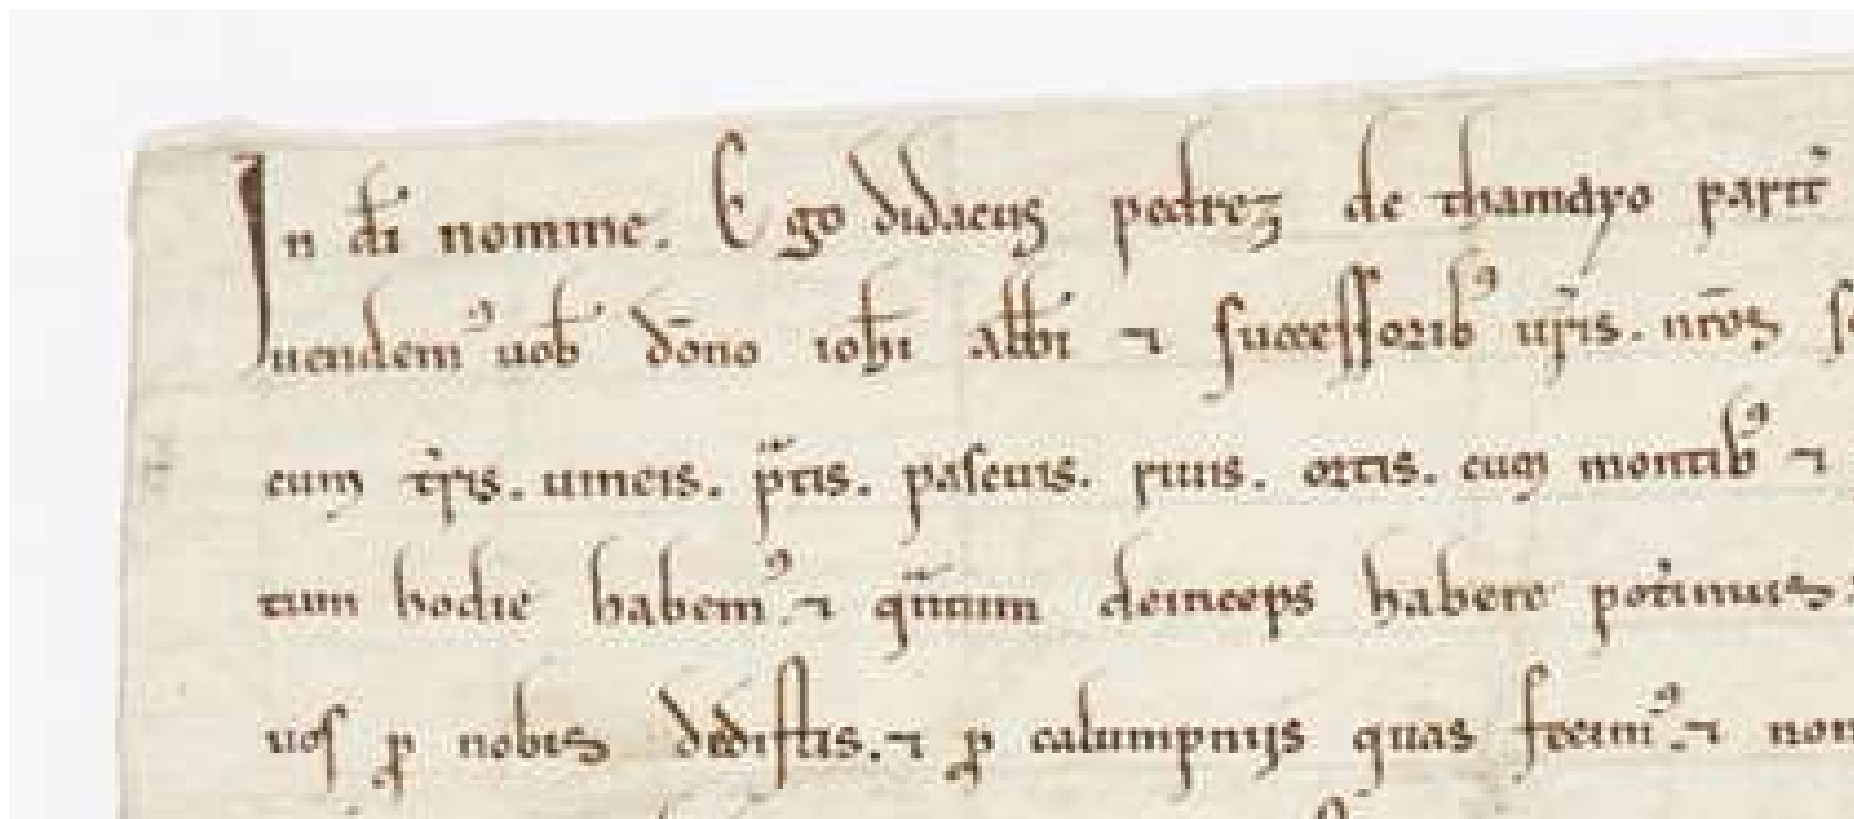 In dī nomine. Ego didacus pedrez de thamayo parit̄
uendemꝰ uob̄ dōno ioh̄i abb̄i ⁊ successoribꝰ ur̄is. nr̄os
cum tr̄is. uineis. pr̄tis. pascuis. riuis. ortis. cum montibꝰ ⁊
tum hodie habemꝰ. ⁊ qn̄tum deinceps habere pot̾imus
uos ꝑ nobis dedistis. ⁊ ꝑ calumpnijs quas fecimꝰ. ⁊ non